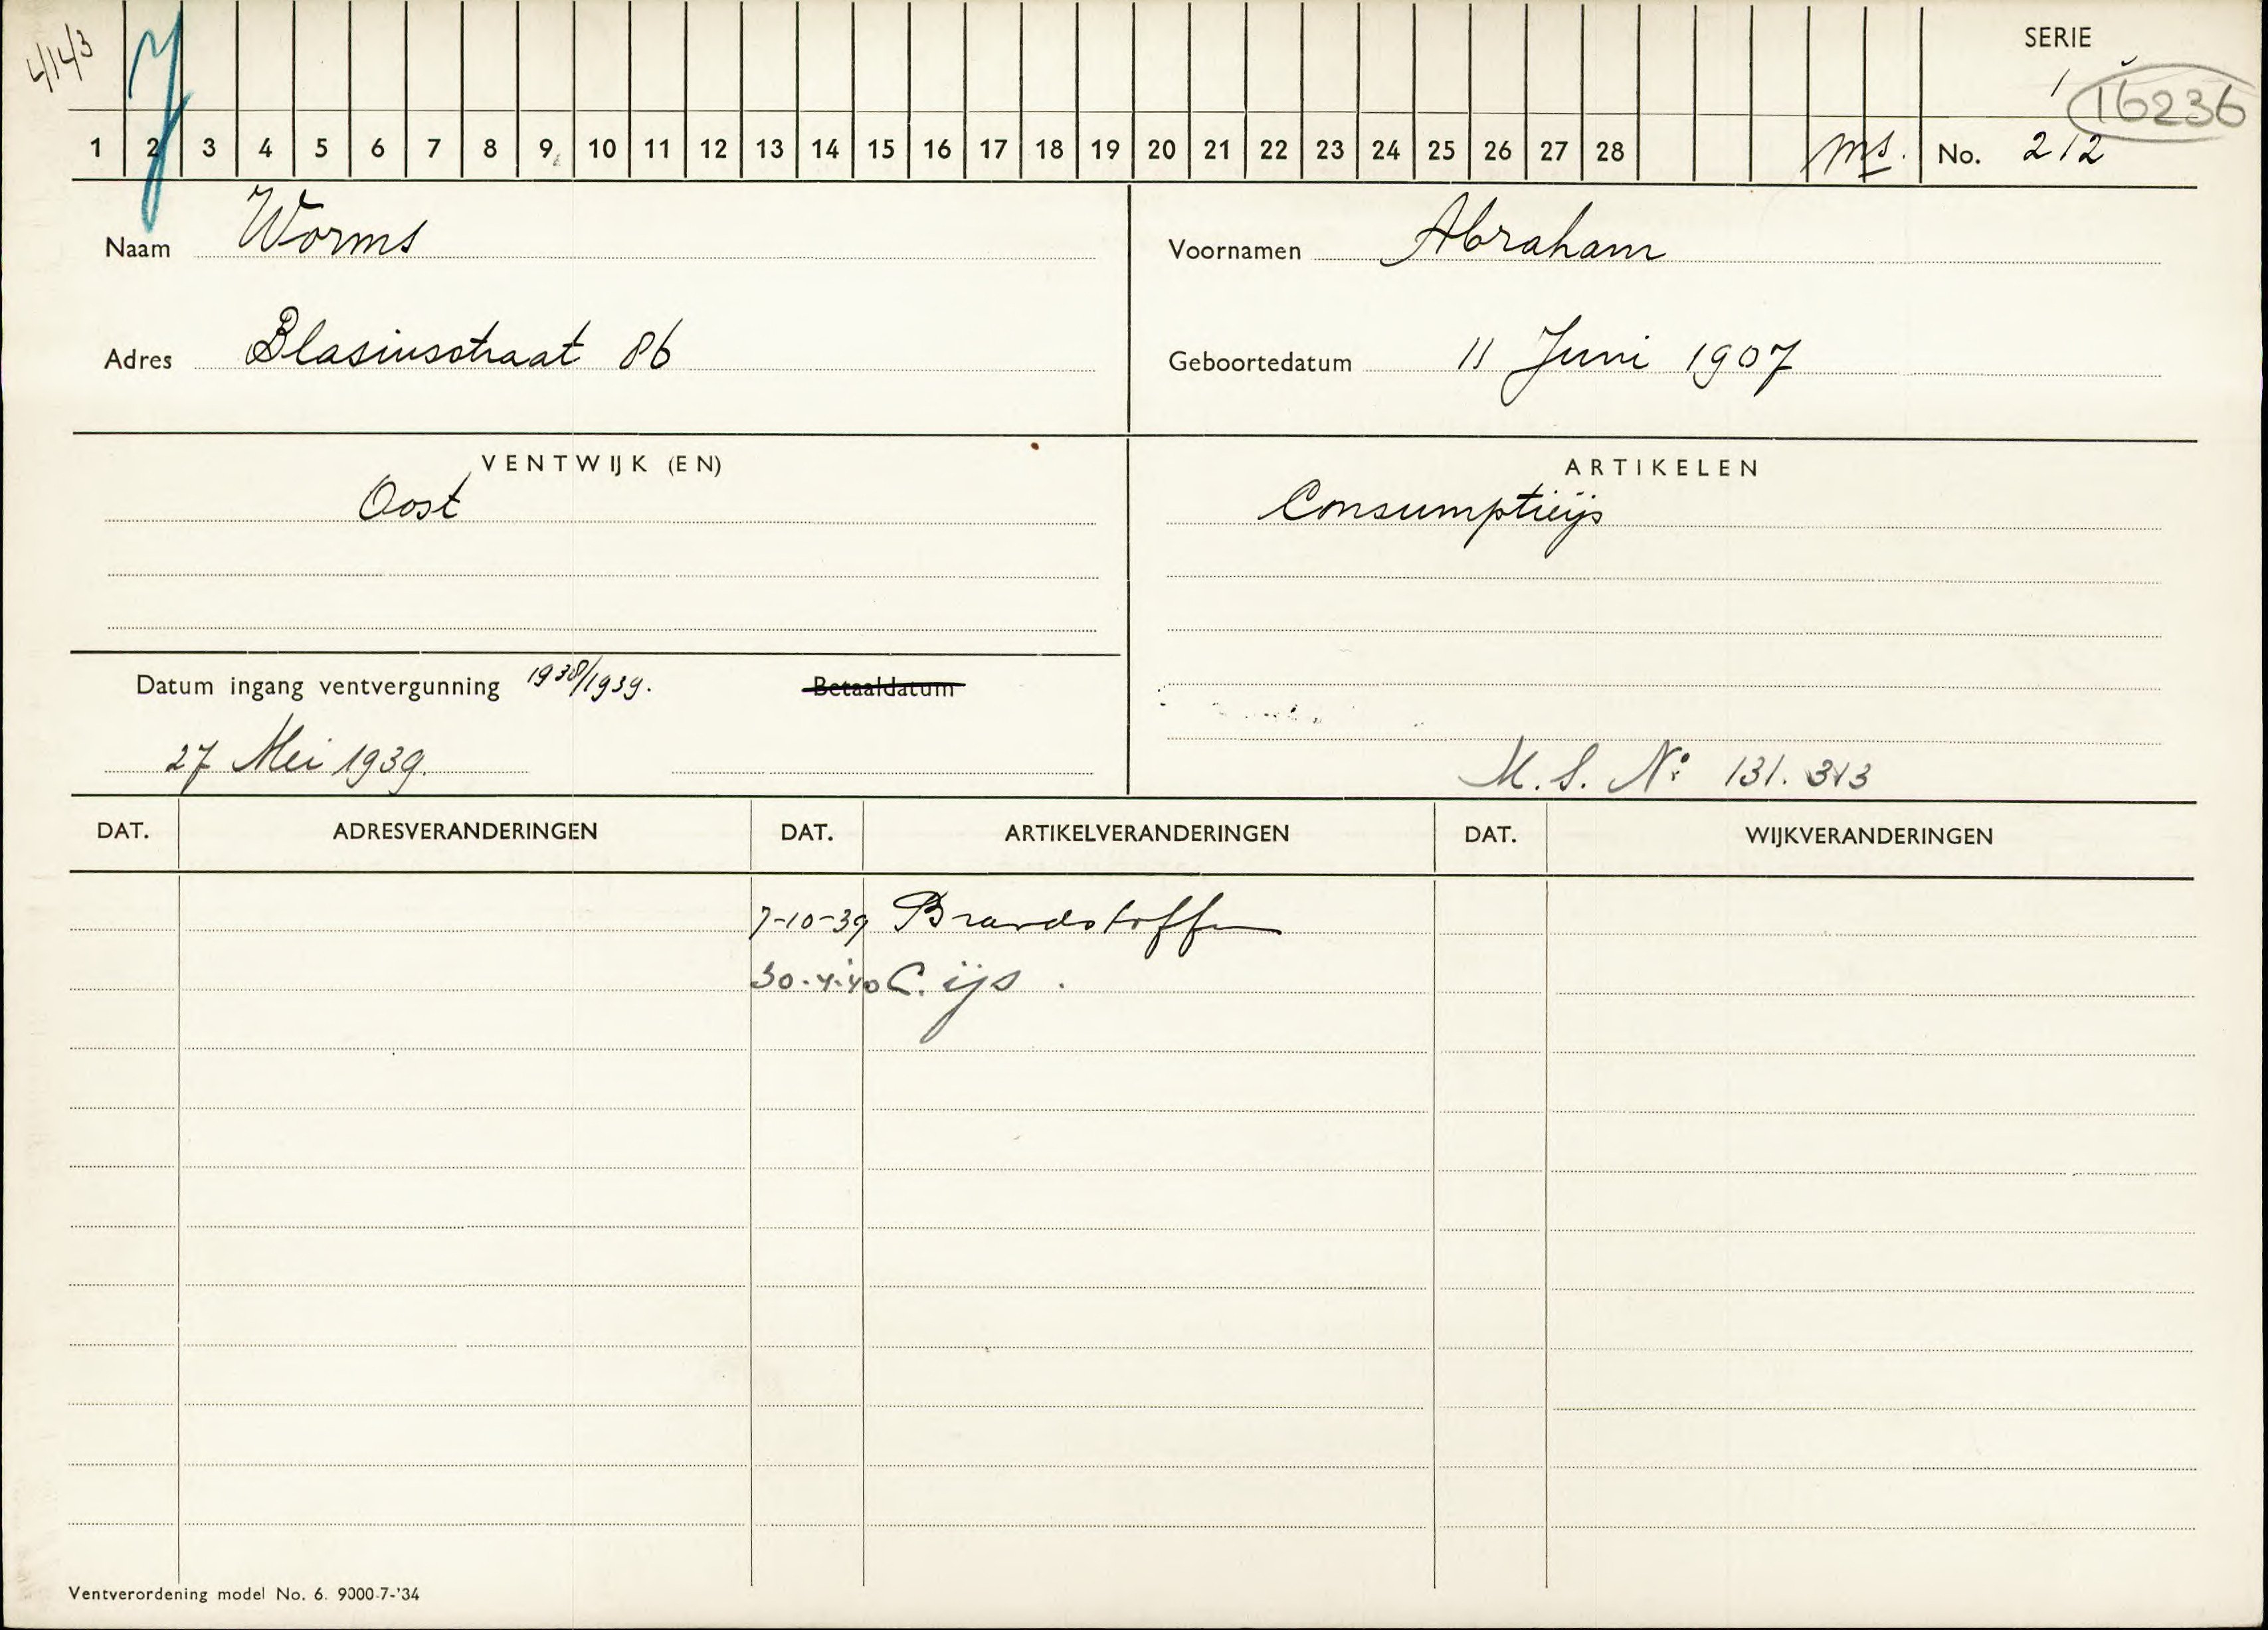 4/14/3
SERIE
1
16236
1 2 3 4 5 6 7 8 9 10 11 12 13 14 15 16 17 18 19 20 21 22 23 24 25 26 27 28 ms. No. 212
Naam Worms Voornamen Abraham
Adres Blasiusstraat 86 Geboortedatum 11 Juni 1907
VENTWIJK (EN) ARTIKELEN
Oost Consumptieijs
Datum ingang ventvergunning 1938/1939. Betaaldatum
27 Mei 1939. M.S. No: 131.313
DAT. ADRESVERANDERINGEN DAT. ARTIKELVERANDERINGEN DAT. WIJKVERANDERINGEN
7-10-39 Brandstoffen
30.4.40 C. ijs .
Ventverordening model No. 6. 9000-7-'34